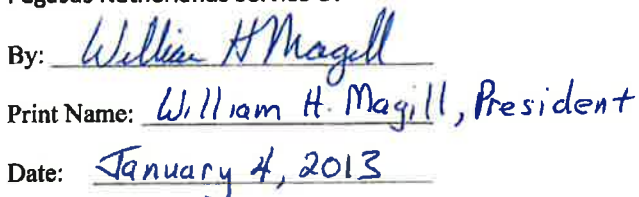 By: William H Magill
Print Name: William H. Magill, President
Date: January 4, 2013